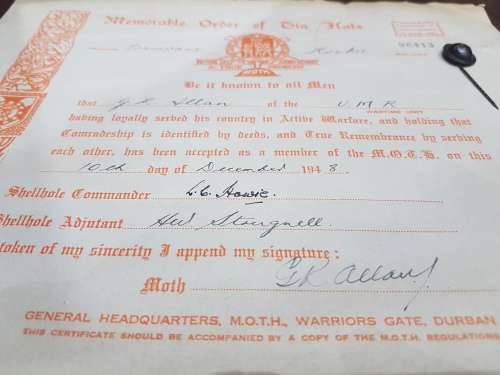 Memorable Order of Tin Hats
Be it known to all Men
that G. R. Allan of the U M R
WARTIME UNIT
having loyally served his country in Active Warfare, and holding that
Comradeship is identified by deeds, and True Remembrance by serving
each other, has been accepted as a member of the M.O.T.H. on this
10th day of December 1948.
Shellhole Commander L. C. Howie.
Shellhole Adjutant HW Strugnell.
token of my sincerity I append my signature:
Moth GR Allan
GENERAL HEADQUARTERS, M.O.T.H., WARRIORS GATE, DURBAN
THIS CERTIFICATE SHOULD BE ACCOMPANIED BY A COPY OF THE M.O.T.H. REGULATIONS